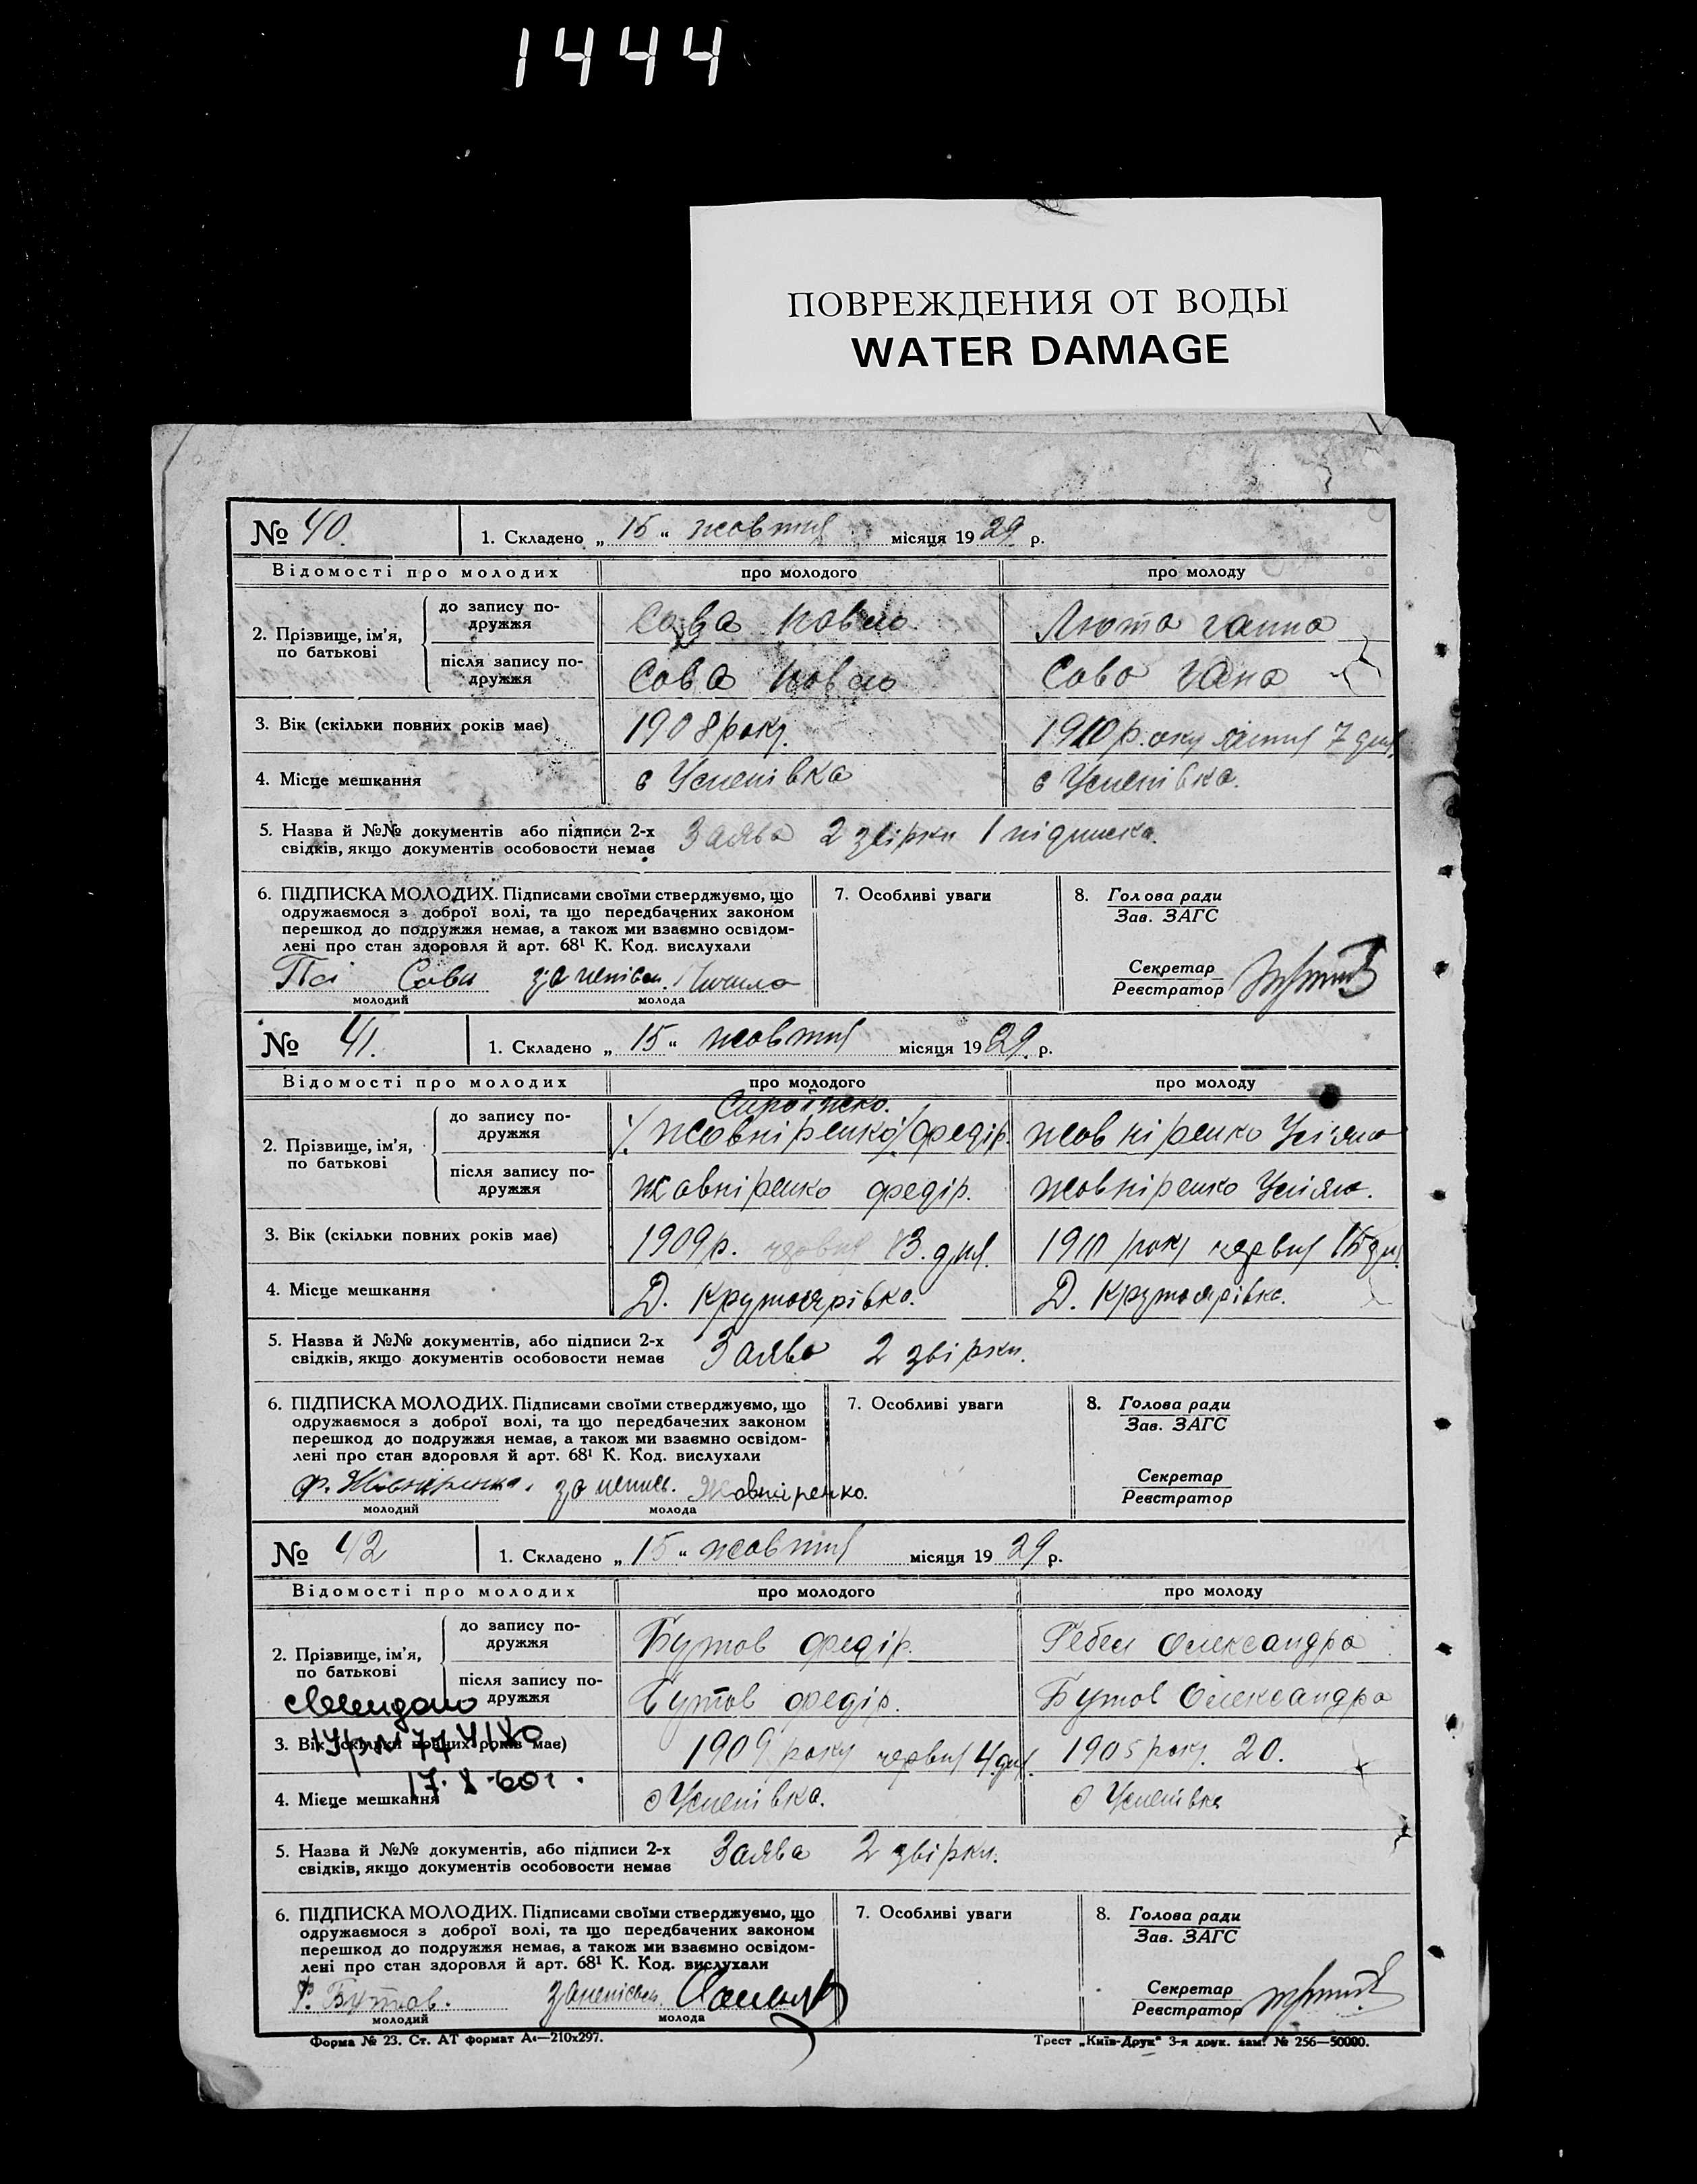 1444
ПОВРЕЖДЕНИЯ ОТ ВОДЫ
WATER DAMAGE
№ 40. 1. Складено „ 15 “ жовтня місяця 1929 р.
Відомості про молодих про молодого про молоду
2. Прізвище, ім’я, по батькові
до запису подружжя Сова Павло Люта Ганна
після запису подружжя Сова Павло Сова Гана
3. Вік (скільки повних років має) 1908 року. 1910 р.оку 7 дня
4. Місце мешкання с Успенівка с Успенівка.
5. Назва й №№ документів або підписи 2-х
свідків, якщо документів особовости немає Заява 2 звірки 1 підписка.
6. ПІДПИСКА МОЛОДИХ. Підписами своїми стверджуємо, що
одружаємося з доброї волі, та що передбачених законом
перешкод до подружжя немає, а також ми взаємно освідом-
лені про стан здоровля й арт. 68¹ К. Код. вислухали
Сова
молодий молода
7. Особливі уваги
8. Голова ради
Зав. ЗАГС
Секретар
Реєстратор
№ 41. 1. Складено „ 15 “ жовтня місяця 1929 р.
Відомості про молодих про молодого про молоду
2. Прізвище, ім’я, по батькові
до запису подружжя /Жовніренко/ Федір. Жовніренко Уліяна
після запису подружжя Жовніренко Федір. Жовніренко Уліяна.
3. Вік (скільки повних років має) 1909 р. 13. дня. 1911 року червня 15 дня
4. Місце мешкання Д. Крутоярівка. Д. Крутоярівка.
5. Назва й №№ документів, або підписи 2-х
свідків, якщо документів особовости немає Заява 2 звірки.
6. ПІДПИСКА МОЛОДИХ. Підписами своїми стверджуємо, що
одружаємося з доброї волі, та що передбачених законом
перешкод до подружжя немає, а також ми взаємно освідом-
лені про стан здоровля й арт. 68¹ К. Код. вислухали
Ф. Жовніренко. за неписьм. Жовніренко.
молодий молода
7. Особливі уваги
8. Голова ради
Зав. ЗАГС
Секретар
Реєстратор
№ 42 1. Складено „ 15 “ жовтня місяця 1929 р.
Відомості про молодих про молодого про молоду
2. Прізвище, ім’я, по батькові
до запису подружжя Бутов Федір. Олександра
після запису подружжя Бутов Федір. Бутов Олександра
3. Вік (скільки повних років має) 1909 року червня 4 дня. 1905 року. 20.
17.X-60 г.
4. Місце мешкання с Успенівка. с Успенівка
5. Назва й №№ документів, або підписи 2-х
свідків, якщо документів особовости немає Заява 2 звірки.
6. ПІДПИСКА МОЛОДИХ. Підписами своїми стверджуємо, що
одружаємося з доброї волі, та що передбачених законом
перешкод до подружжя немає, а також ми взаємно освідом-
лені про стан здоровля й арт. 68¹ К. Код. вислухали
Ф. Бутов.
молодий молода
7. Особливі уваги
8. Голова ради
Зав. ЗАГС
Секретар
Реєстратор
Форма № 23. Ст. АТ формат А₄—210х297. Трест „Київ-Друк“ 3-я друк. зам. № 256—50000.